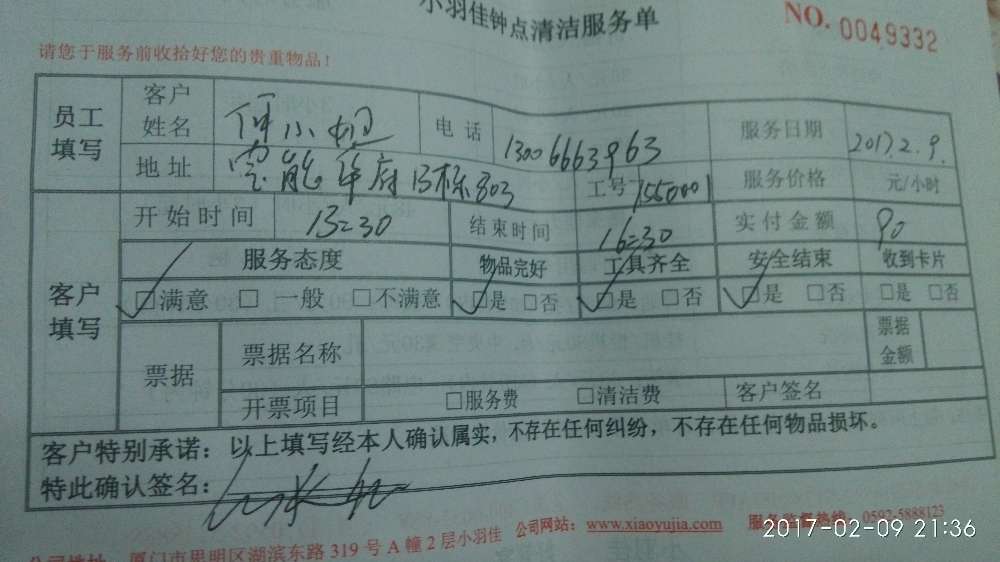 小羽佳钟点清洁服务单
NO. 0049332
请您于服务前收拾好您的贵重物品!
员工填写 客户姓名 小 电话 13006663963 服务日期 2017.2.9.
地址 宝能华府B栋803 工号 1550001 服务价格 元/小时
开始时间 13:30 结束时间 16:30 实付金额 90
客户填写 服务态度 物品完好 工具齐全 安全结束 收到卡片
☑满意 □一般 □不满意 ☑是 □否 ☑是 □否 ☑是 □否 □是 □否
票据 票据名称 票据金额
开票项目 □服务费 □清洁费 客户签名
客户特别承诺：以上填写经本人确认属实，不存在任何纠纷，不存在任何物品损坏。
特此确认签名：
公司地址 厦门市思明区湖滨东路319号A幢2层小羽佳 公司网站：www.xiaoyujia.com 服务监督热线：0592-5888123
2017-02-09 21:36